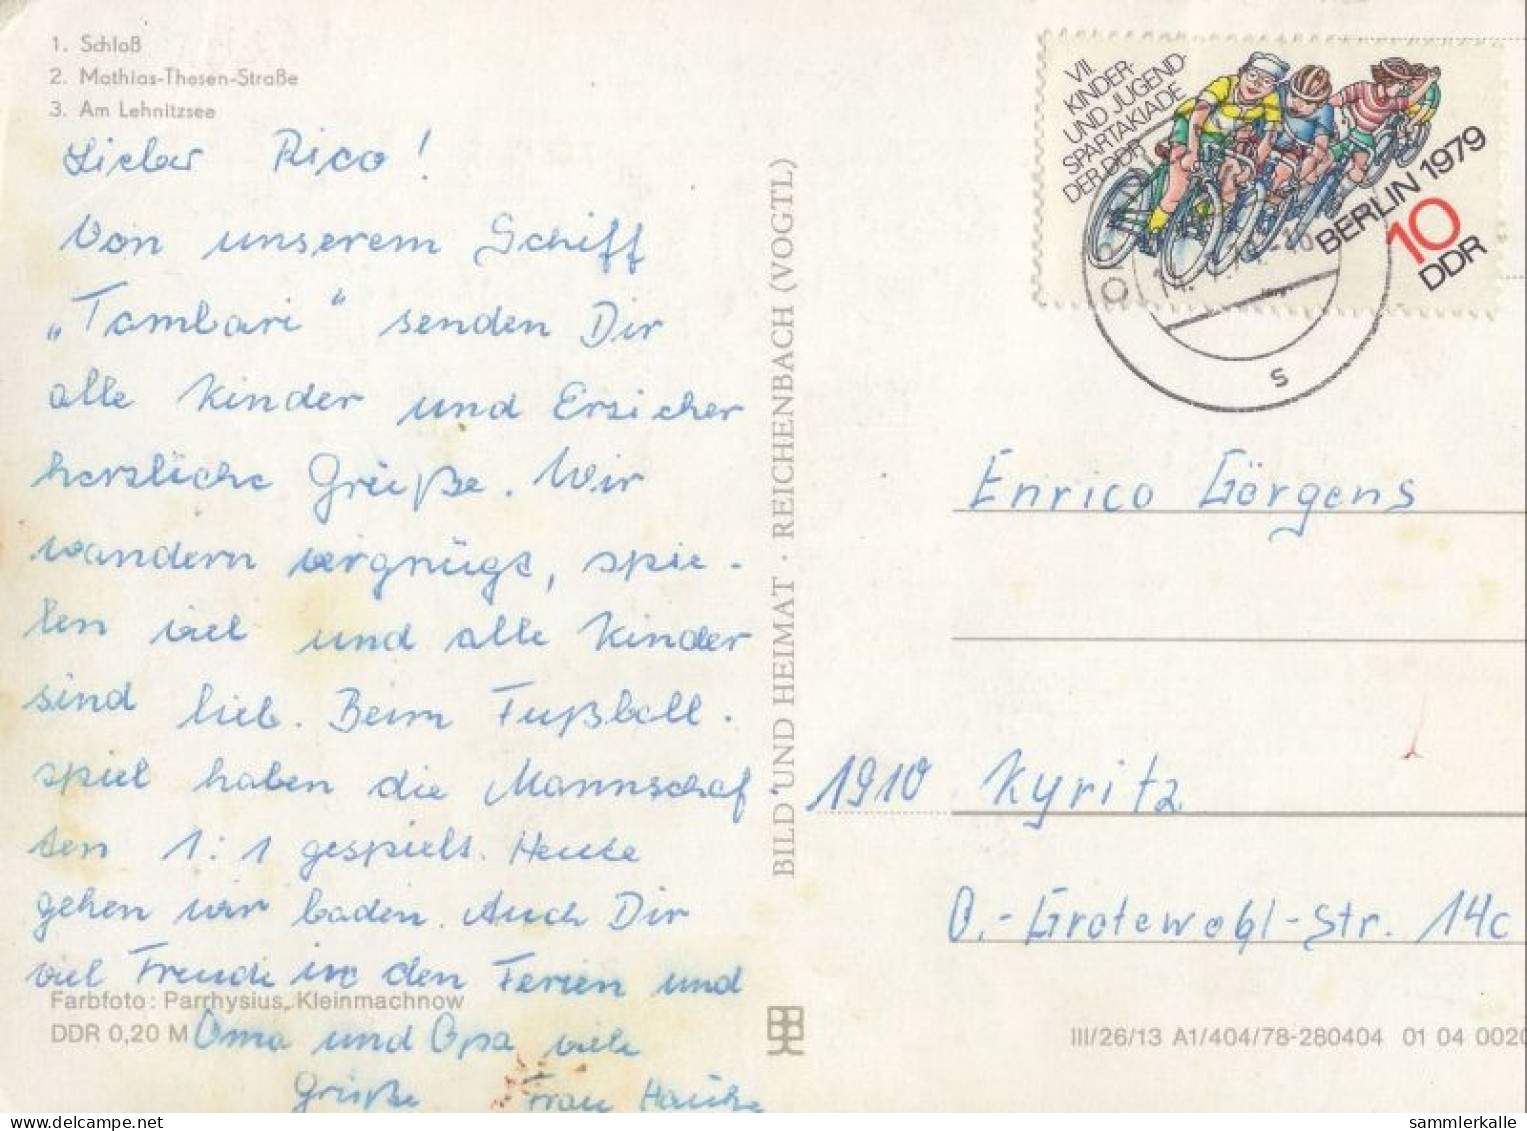 1. Schloß
2. Mathias-Thesen-Straße
3. Am Lehnitzsee
Lieber Rico!
Von unserem Schiff
„Tambari“ senden Dir
alle Kinder und Erzieher
herzliche Grüße. Wir
wandern vergnügt, spie-
len viel und alle Kinder
sind lieb. Beim Fußball-
spiel haben die Mannschaf
ten 1:1 gespielt. Heute
gehen wir baden. Auch Dir
viel Freude in den Ferien und
Oma und Opa viele
Grüße Frau
Farbfoto: Parrhysius, Kleinmachnow
DDR 0,20 M
BILD UND HEIMAT · REICHENBACH (VOGTL)
VII.
KINDER-
UND JUGEND-
SPARTAKIADE
DER DDR
BERLIN 1979
10
DDR
s
Enrico Görgens
1910 Kyritz
O.-Grotewohl-Str. 14c
III/26/13 A1/404/78-280404 01 04 0020
sammlerkalle